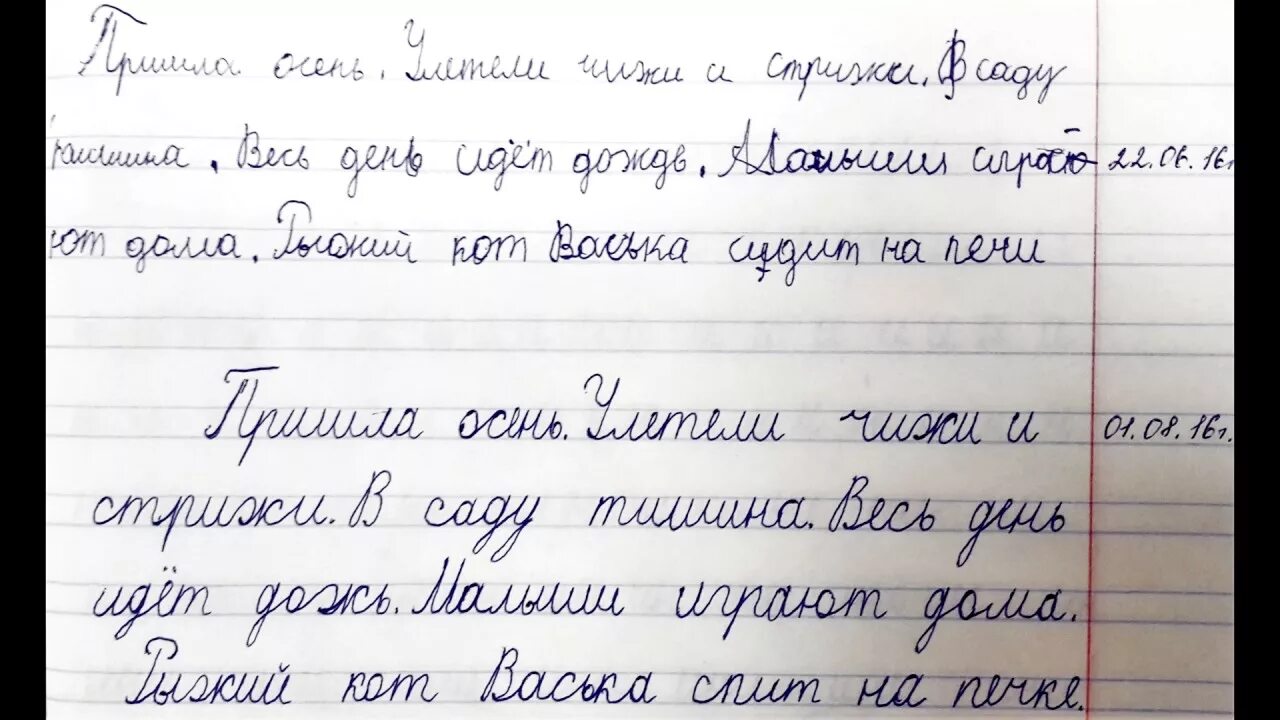 Пришла осень. Улетели чижи и стрижи. В саду
тишина. Весь день идёт дождь. Малыши игра- 22.06.16г.
ют дома. Рыжий кот Васька сидит на печи
Пришла осень. Улетели чижи и 01.08.16г.
стрижи. В саду тишина. Весь день
идёт дожь. Малыши играют дома.
Рыжий кот Васька спит на печке.